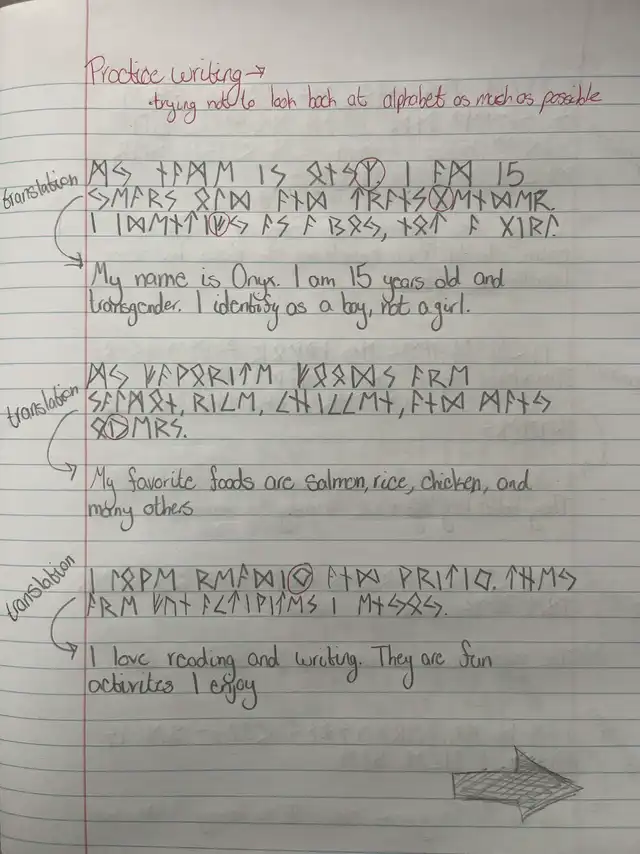 Practice writing →
trying not to look back at alphabet as much as possible
ᛗᛃ ᚾᚨᛗᛖ ᛁᛊ ᛟᚾᛃᛉ ᛁ ᚨᛗ 15
translation
ᛃᛖᚨᚱᛊ ᛟᛚᛞ ᚨᚾᛞ ᛏᚱᚨᚾᛊᚷᛖᚾᛞᛖᚱ.
ᛁ ᛁᛞᛖᚾᛏᛁᚠᛃ ᚨᛊ ᚨ ᛒᛟᛃ, ᚾᛟᛏ ᚨ ᚷᛁᚱᛚ.
My name is Onyx. I am 15 years old and
transgender. I identify as a boy, not a girl.
ᛗᛃ ᚠᚨᚹᛟᚱᛁᛏᛖ ᚠᛟᛟᛞᛊ ᚨᚱᛖ
translation
ᛊᚨᛚᛗᛟᚾ, ᚱᛁᚲᛖ, ᚲᚺᛁᚲᚲᛖᚾ, ᚨᚾᛞ ᛗᚨᚾᛃ
ᛟᚦᛖᚱᛊ.
My favorite foods are salmon, rice, chicken, and
many others
translation
ᛁ ᛚᛟᚹᛖ ᚱᛖᚨᛞᛁᛜ ᚨᚾᛞ ᚹᚱᛁᛏᛁᛜ. ᛏᚺᛖᛃ
ᚨᚱᛖ ᚠᚢᚾ ᚨᚲᛏᛁᚹᛁᛏᛖᛊ ᛁ ᛖᚾᛃᛟᛃ.
I love reading and writing. They are fun
activites I enjoy